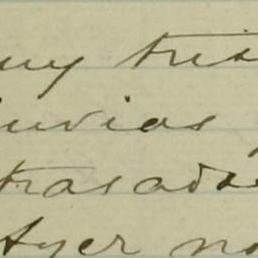 muy tris
luvias
trasada
Ayer no